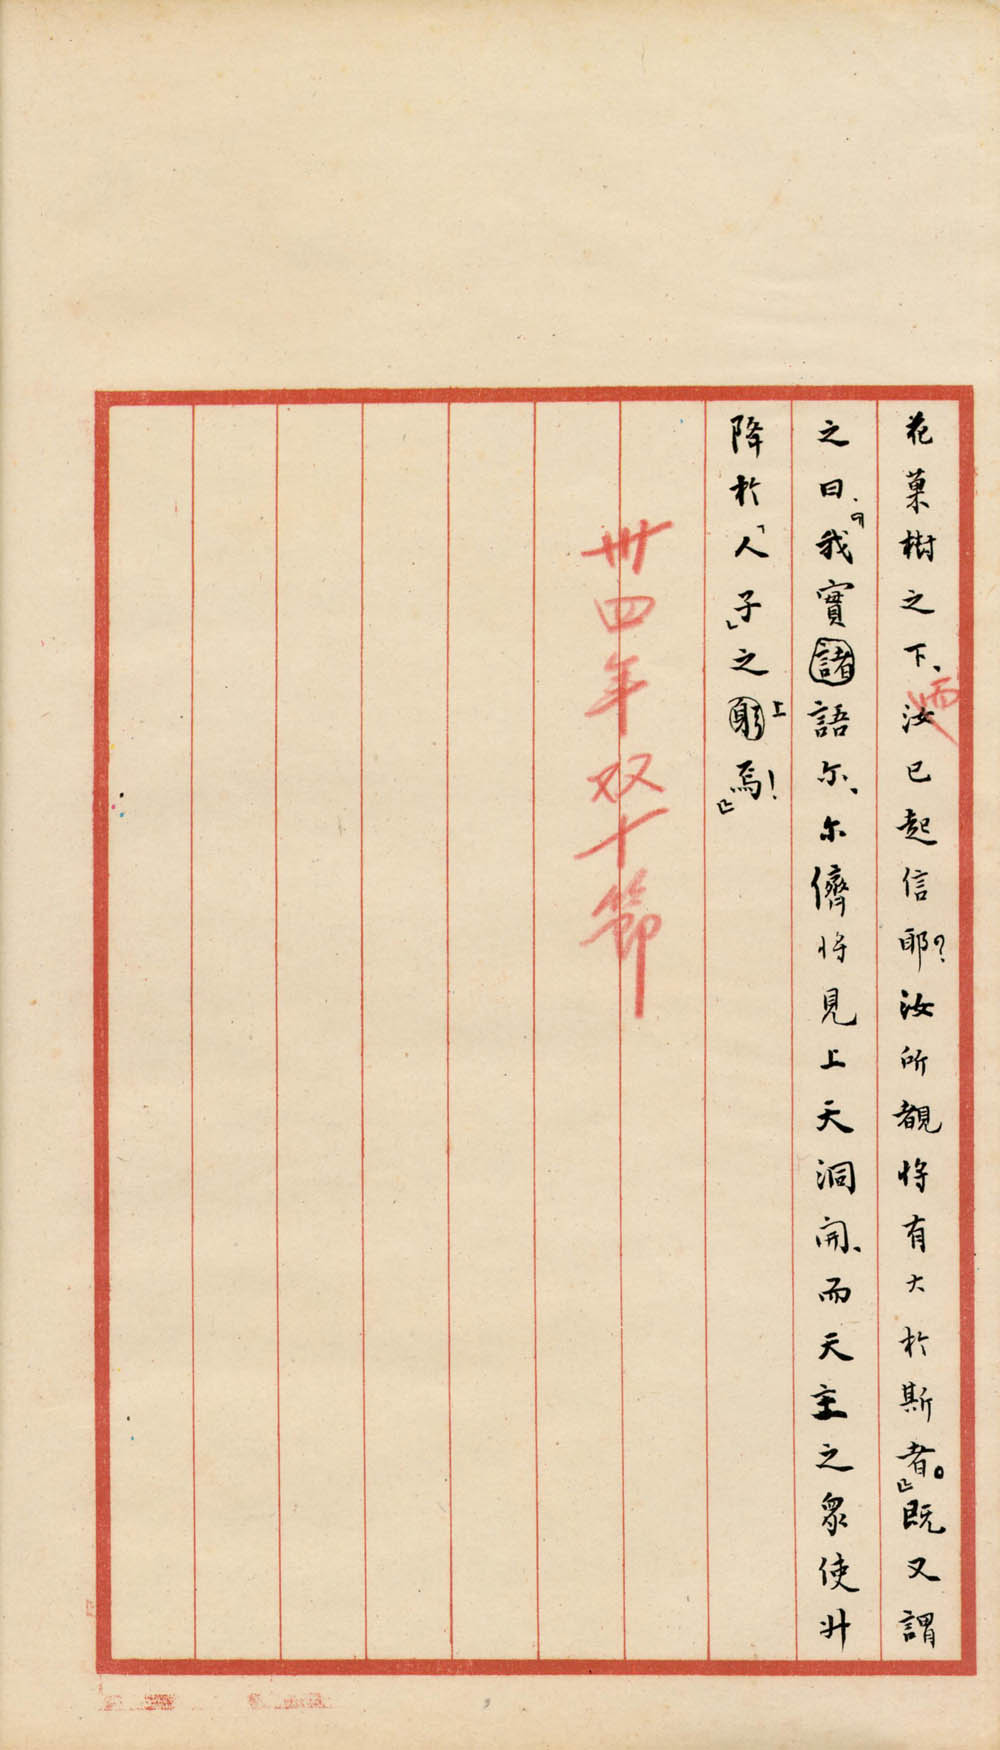 花菓樹之下、而汝已起信耶？汝所覩将有大於斯者。』既又謂
之曰：『我實諸語尔、尔儕将見上天洞開、而天主之衆使升
降於「人子」之躬上焉！』
卅四年双十節